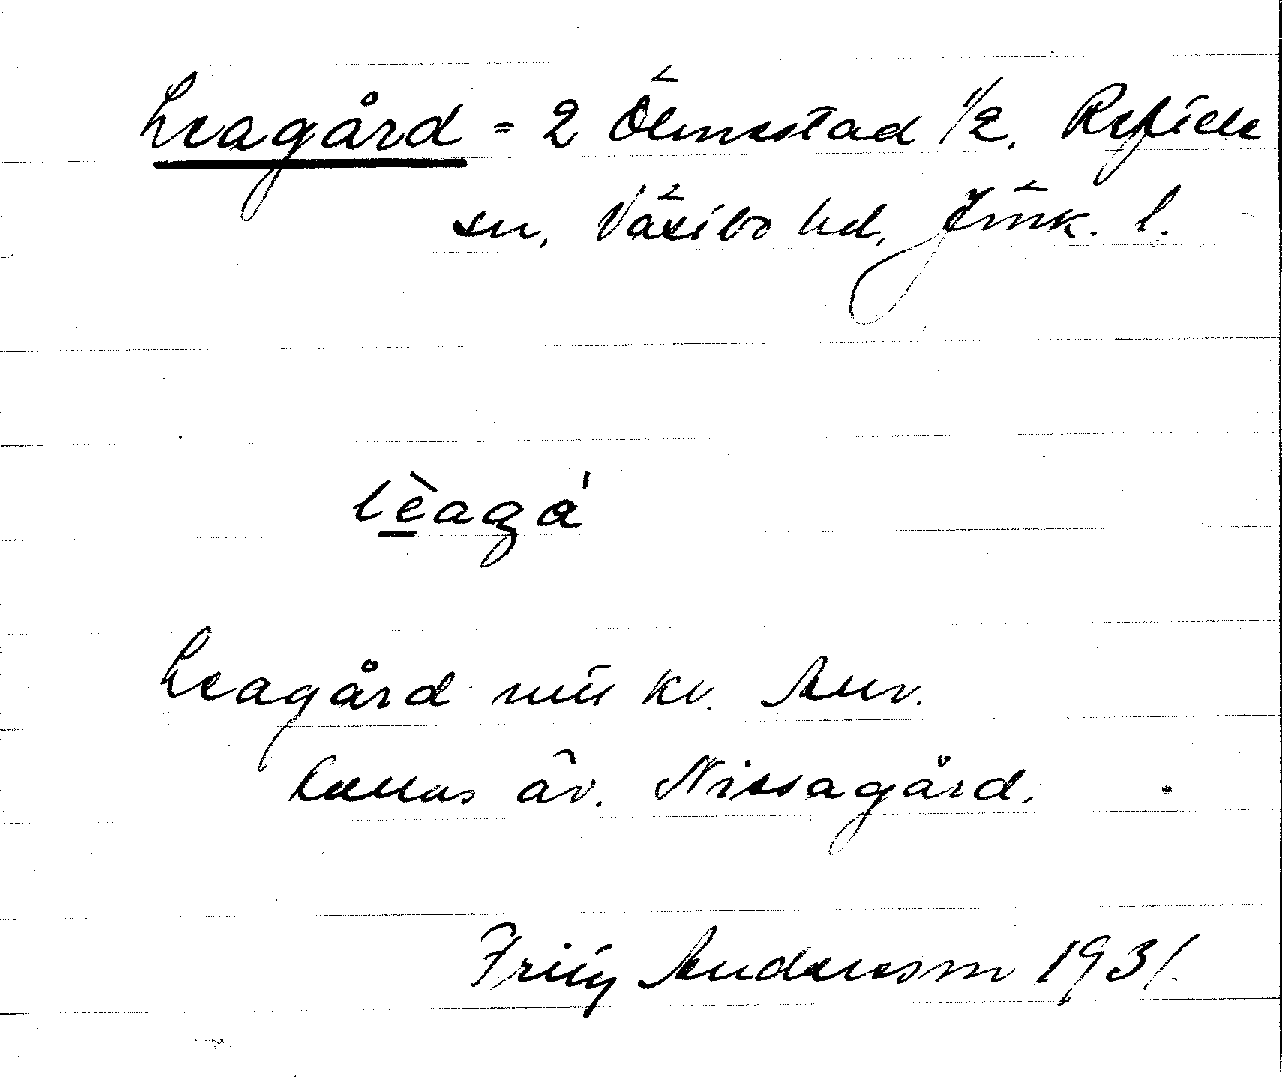 Leagård = 2 Ölmestad 1/2. Reftele
sn, Västbo hd, Jönk. l.
lèagá
Leagård nu kv. Anv.
kallas äv. Nissagård.
Andersson 1931